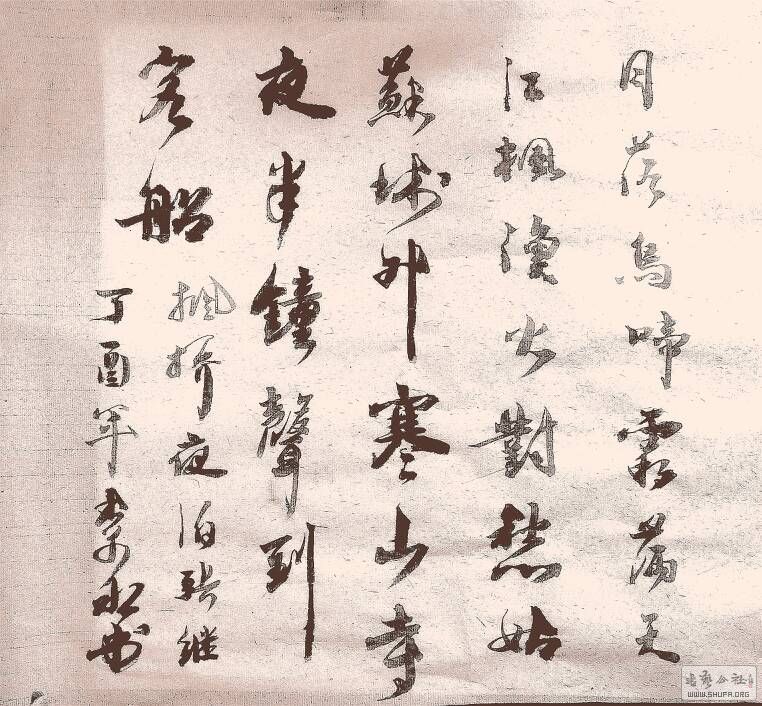 月落烏啼霜滿天
江楓漁火對愁姑
蘇城外寒山寺
夜半鐘聲到
客船
枫桥夜泊张继
丁酉年书
书艺公社
WWW.SHUFA.ORG